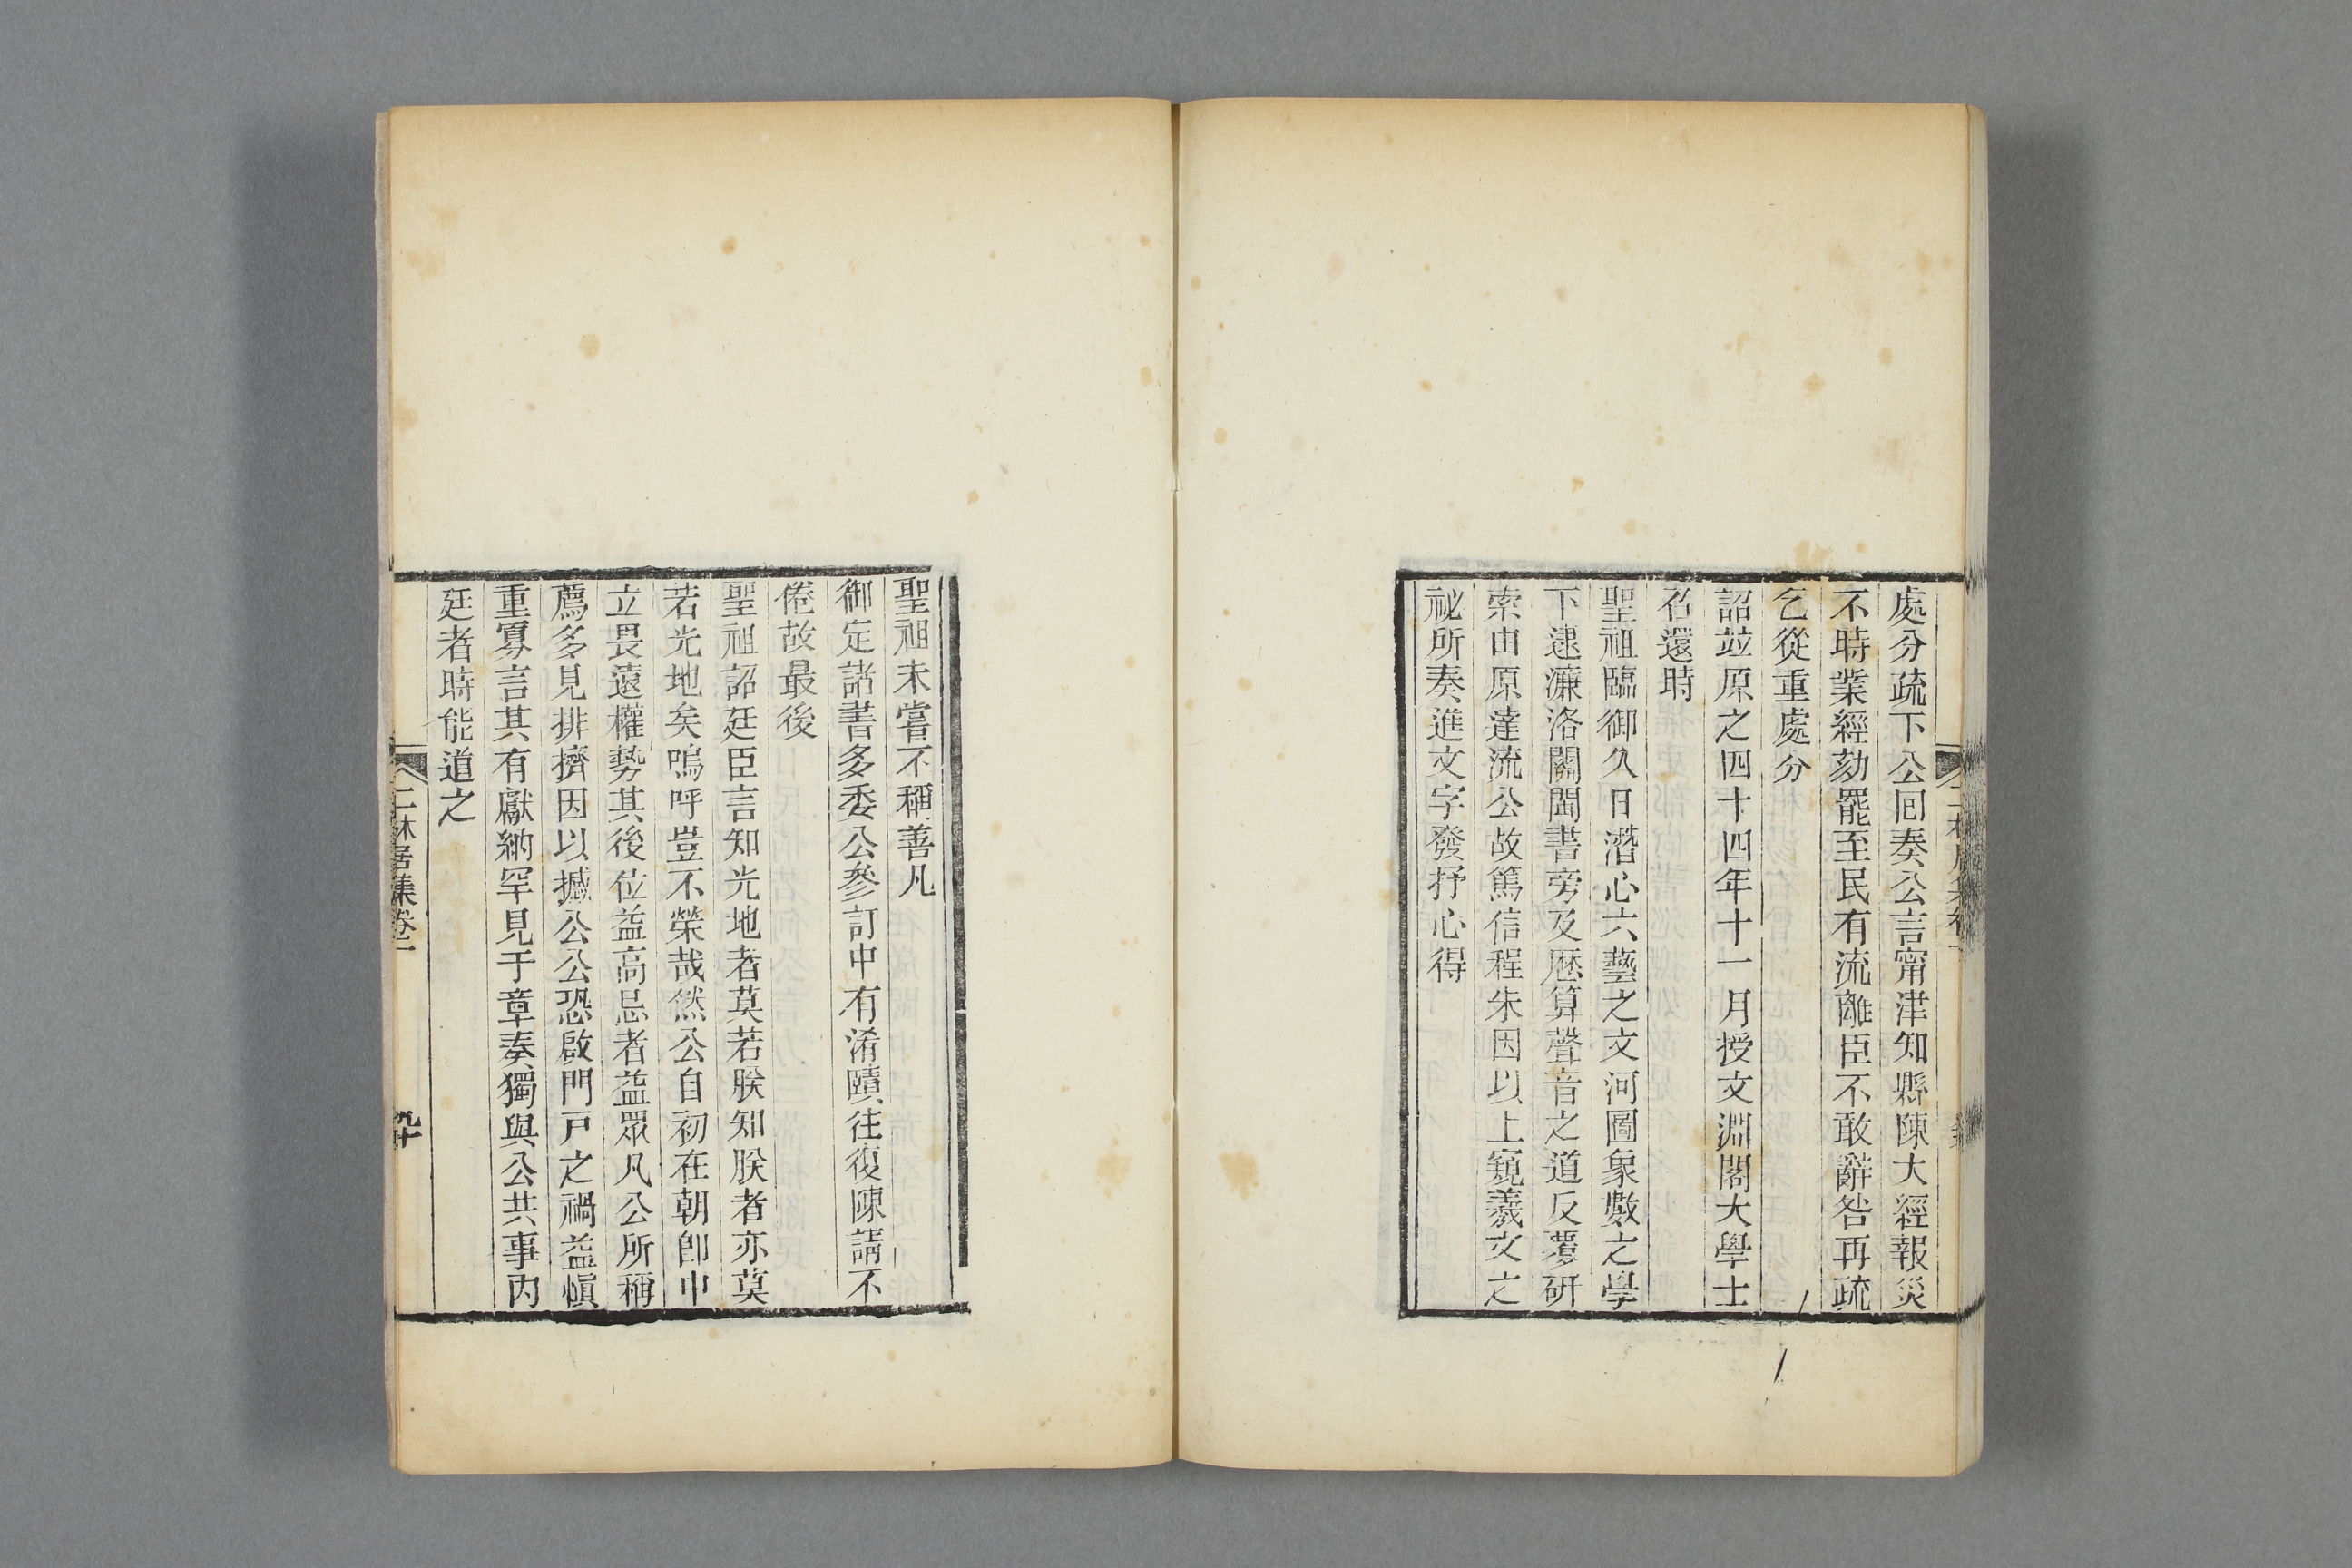 處分疏下公囘奏公言甯津知縣陳大經報災
不時業經劾罷至民有流離臣不敢辭咎再疏
乞從重處分
詔竝原之四十四年十一月授文淵閣大學士
召還時
聖祖臨御久日潛心六藝之文河圖象數之學
下逮濂洛關閩書旁及厯算聲音之道反覆研
索由原達流公故篤信程朱因以上窺羲文之
祕所奏進文字發抒心得
聖祖未嘗不稱善凡
御定諸書多委公參訂中有淆賾往復陳請不
倦故最後
聖祖詔廷臣言知光地者莫若朕知朕者亦莫
若光地矣嗚呼豈不榮哉然公自初在朝卽中
立畏遠權勢其後位益高忌者益眾凡公所稱
薦多見排擠因以撼公公恐啟門戸之禍益愼
重寡言其有獻納罕見于章奏獨與公共事內
廷者時能道之
二林居集卷二